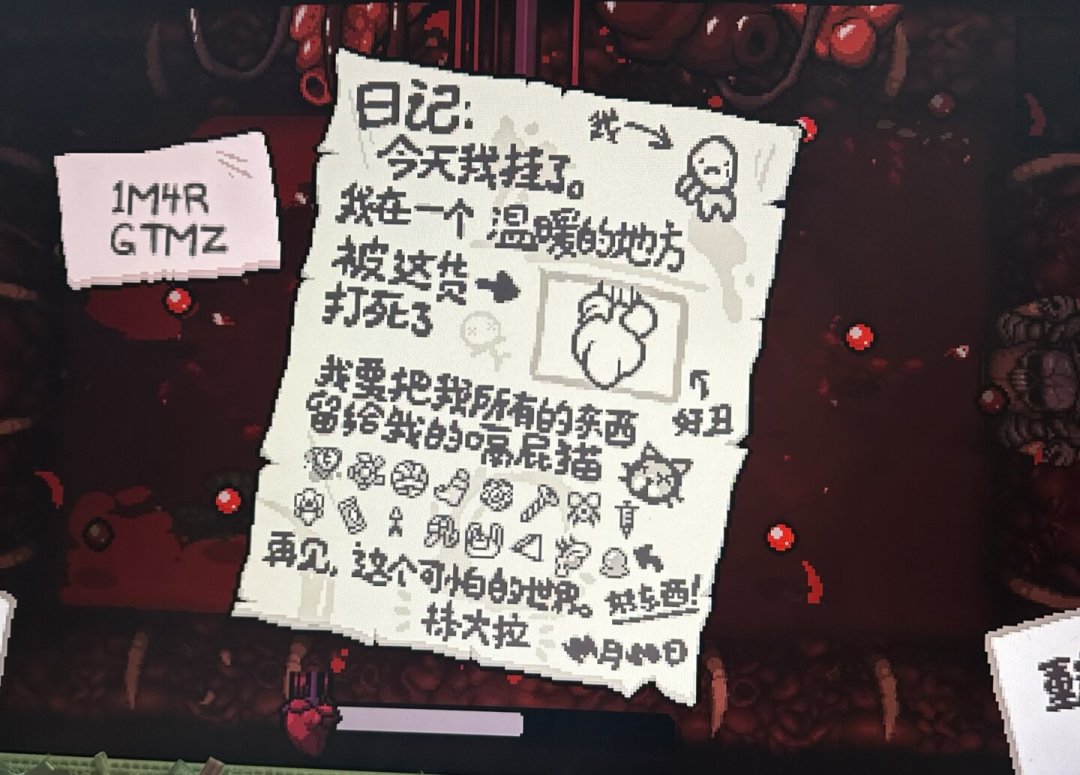 1M4R
GTMZ
日记:
我
今天我挂了。
我在一个 温暖的地方
被这货
打死了
好丑
我要把我所有的东西
留给我的嗝屁猫
再见, 这个可怕的世界。
好东西!
抹大拉
月 日